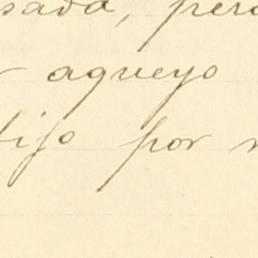 sada, pero
aqueyo
dijo por